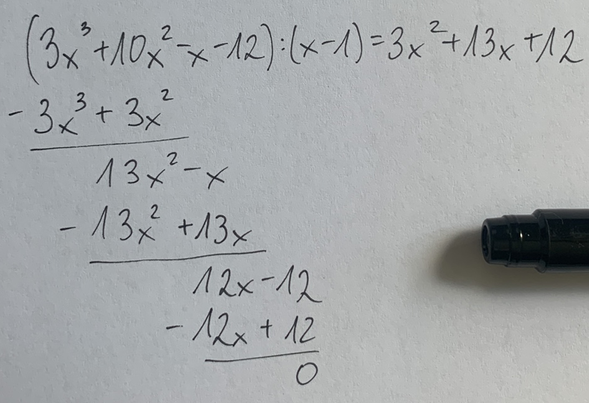 (3x³+10x²-x-12):(x-1)=3x²+13x+12
-3x³+3x²
13x²-x
-13x²+13x
12x-12
-12x+12
0